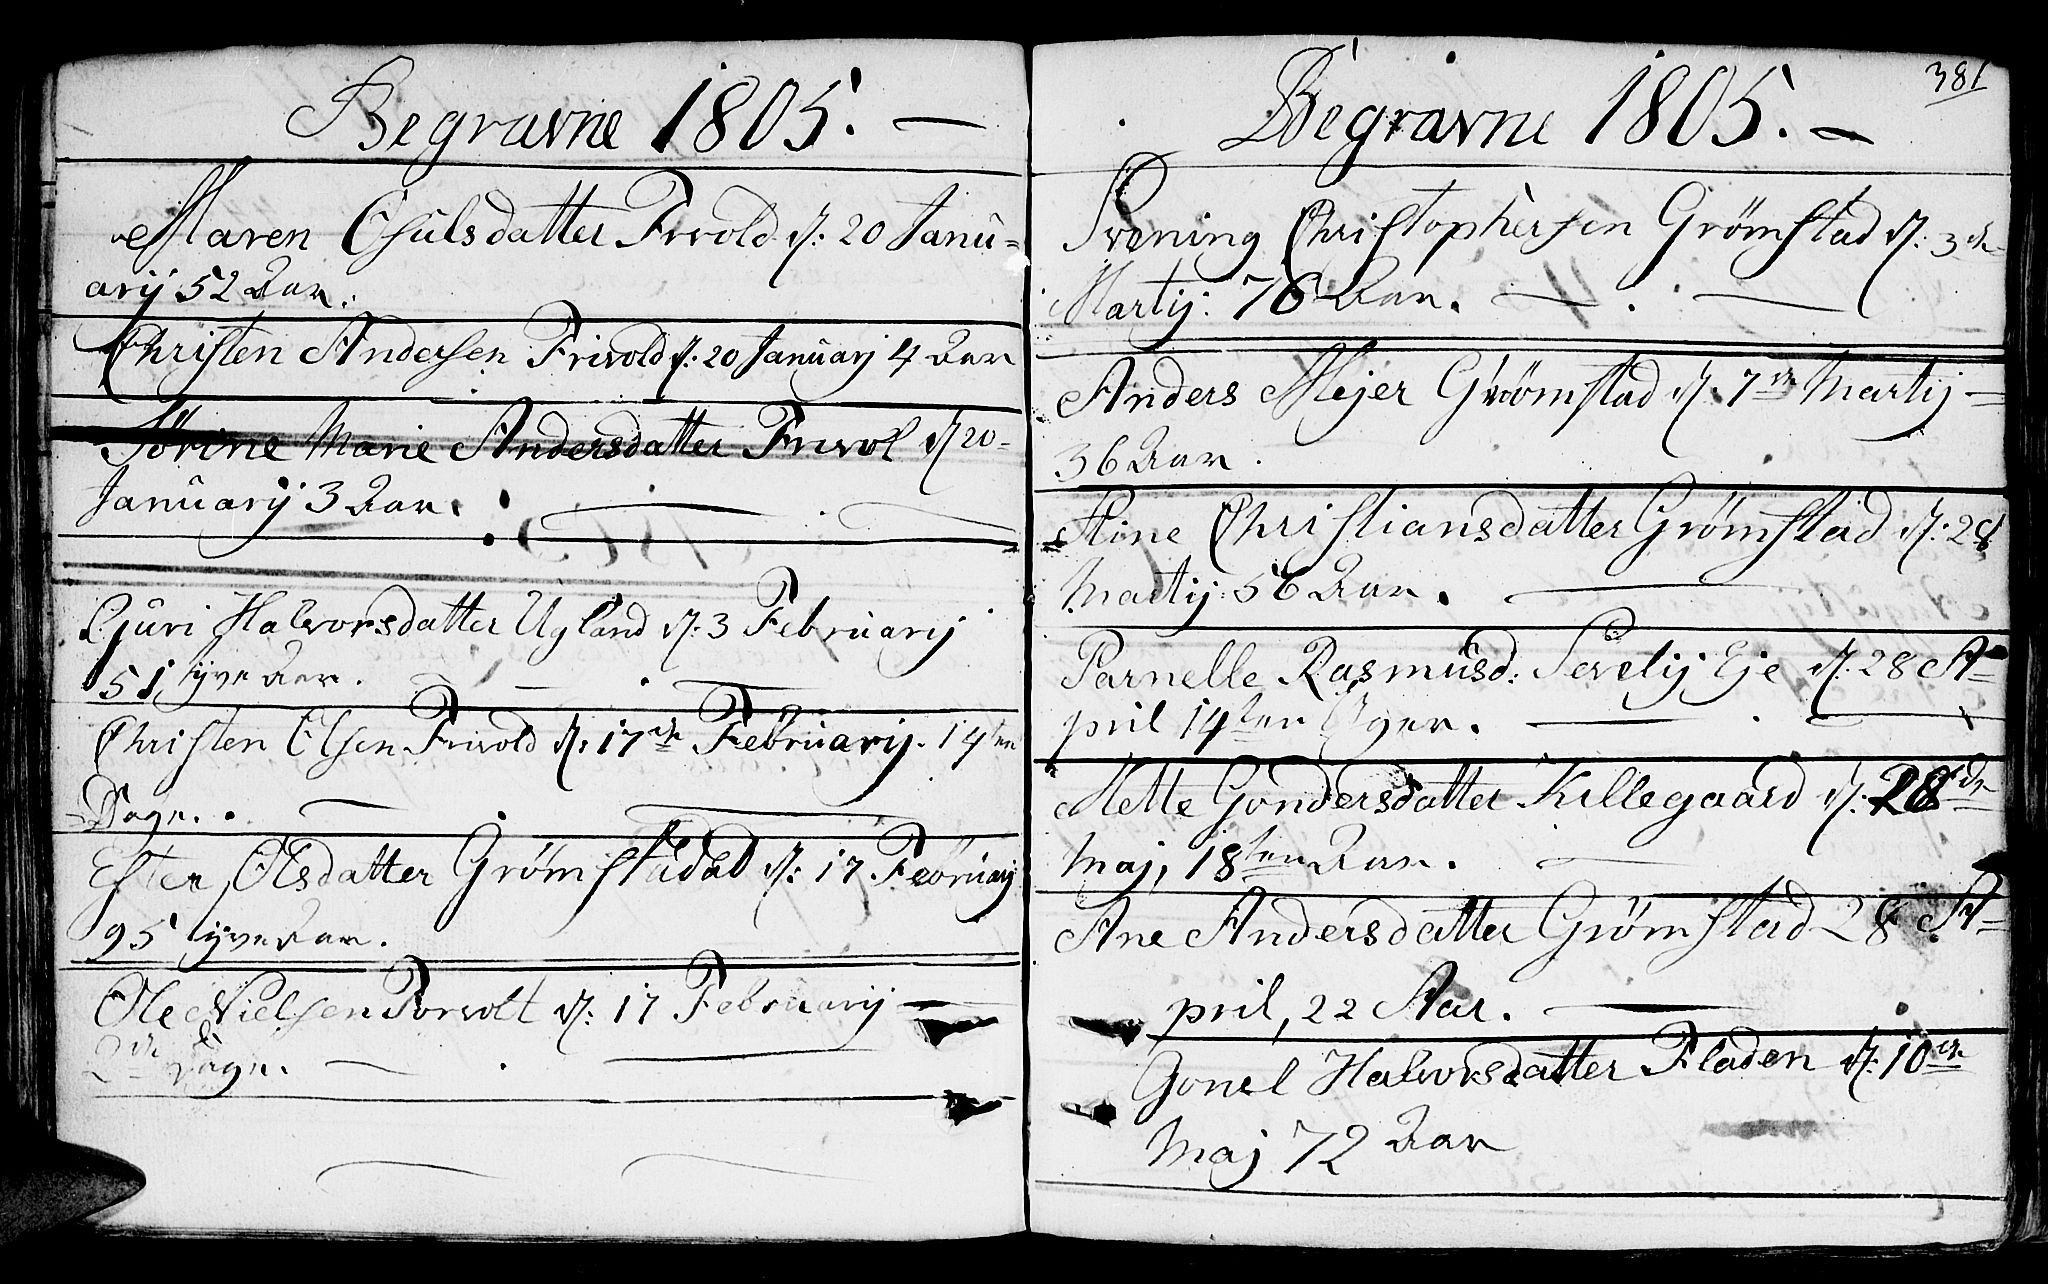 Begravne 1805. —
Maren Osulsdatter Frivold d: 20 Janu-
arij 52 Aar.
Christen Andersen Frivold d: 20 Januarj 4 Aar
Sørine Marie Andersdatter Frivol d 20-
Januarij 3 Aar.
Gjuri Halvorsdatter Ugland d: 3 Februarij
51 tyve Aar.
Christen Olsen Frivold d: 17de Februarij. 14ten
Dage.
Ester Olsdatter Grømstadad d: 17 Februarj
95 tyve Aar.
Ole Nielsen Porvolt d: 17 Februarij —
2de Dage.
381
Begravne 1805. —
Svening Christophersen Grømstad d: 3de
Martij: 76 Aar. — . —
Anders Mejer Grømstad d. 7de Martij —
36 Aar.
Stine Christiansdatter Grømstad d: 28
Martij: 56 Aar. —
Parnelle Rasmusd: Sevelij Eje d. 28 A-
pril 14ten Uger. — . —
Mette Gondersdatter Killegaard d: 28de
Maj, 18ten Aar. —
Ane Andersdatter Grømstad 28 A-
pril, 22 Aar. —
Gonel Halvorsdatter Fladen d: 10de
Maj 72 Aar